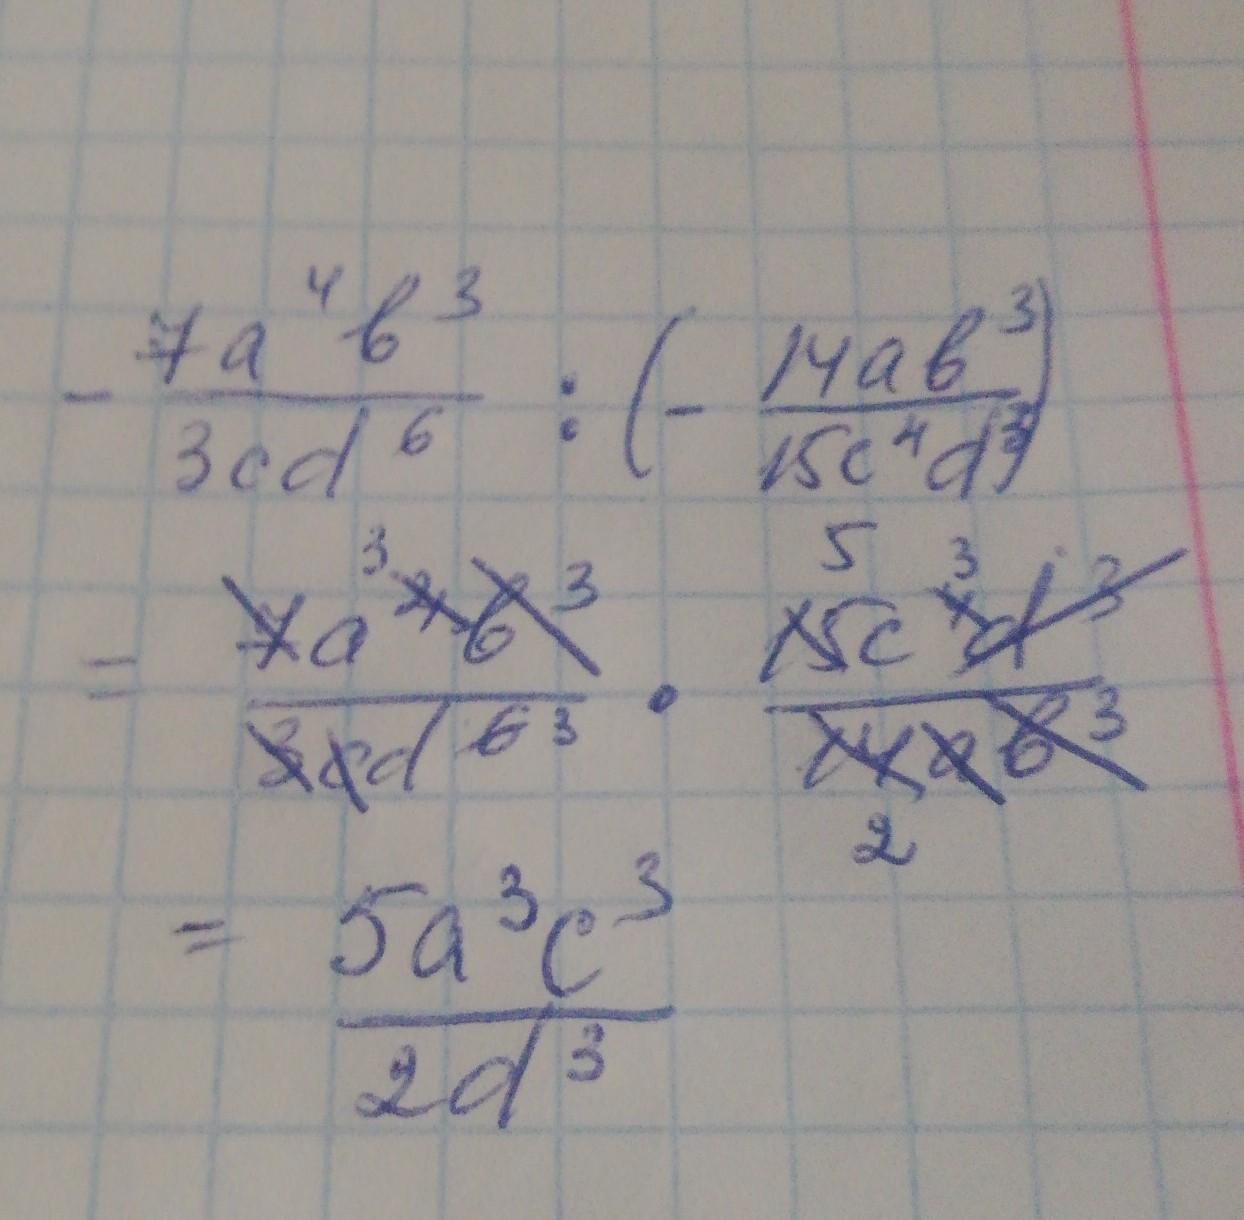 - 7a⁴b³/3cd⁶ : (- 14ab³/15c⁴d³)
= 7a⁴ ³b³/3cd⁶ ³ · 15 5c⁴ ³d³/14 2ab³
= 5a³c³/2d³